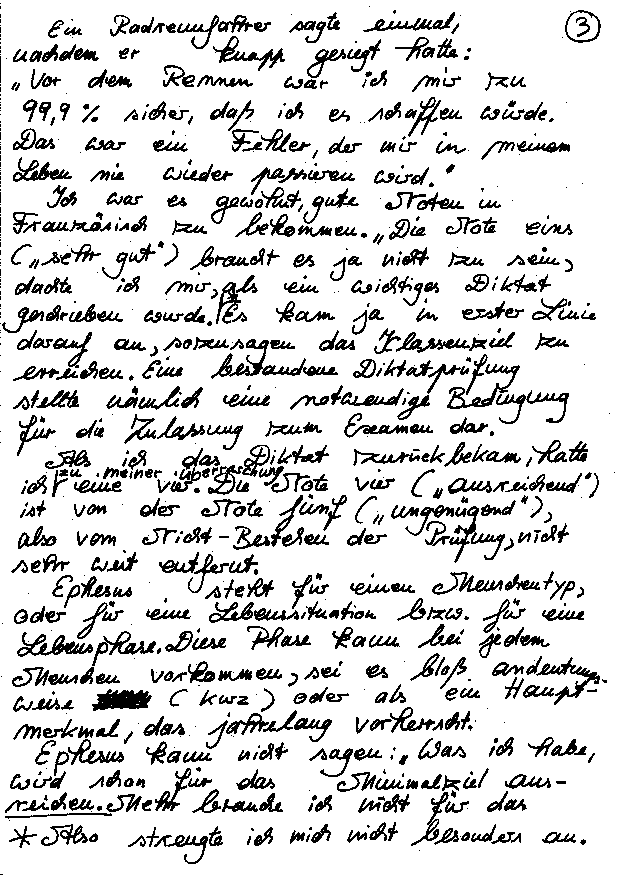 ③
Ein Radrennfahrer sagte einmal,
nachdem er knapp gesiegt hatte:
„Vor dem Rennen war ich mir zu
99,9 % sicher, daß ich es schaffen würde.
Das war ein Fehler, der mir in meinem
Leben nie wieder passieren wird."
Ich war es gewohnt, gute Noten in
Französisch zu bekommen. „Die Note eins
(„sehr gut") braucht es ja nicht zu sein,
dachte ich mir, als ein wichtiges Diktat
geschrieben wurde.* Es kam ja in erster Linie
darauf an, sozusagen das Klassenziel zu
erreichen. Eine bestandene Diktatprüfung
stellte nämlich eine notwendige Bedingung
für die Zulassung zum Examen dar.
Als ich das Diktat zurückbekam, hatte
zu meiner Überraschung
ich eine vier. Die Note vier („ausreichend")
ist von der Note fünf („ungenügend"),
also vom Nicht-Bestehen der Prüfung, nicht
sehr weit entfernt.
Ephesus steht für einen Menschentyp,
oder für eine Lebenssituation bzw. für eine
Lebensphase. Diese Phase kann bei jedem
Menschen vorkommen, sei es bloß andeutungs-
weise (kurz) oder als ein Haupt-
merkmal, das jahrelang vorherrscht.
Ephesus kann nicht sagen: „Was ich habe,
wird schon für das Minimalziel aus-
reichen. Mehr brauche ich nicht für das
* Also strengte ich mich nicht besonders an.